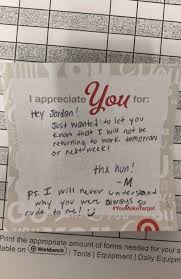 I appreciate You for:
Hey Jordan!
Just wanted to let you
know that I will not be
returning to work tomorrow
or next week!
thx hun!
-M
ps. I will never understand
why you were always so
rude to me! :)
#YouMakeTarget
Print the appropriate amount of forms needed for your s
lable on Workbench | Tools | Equipment | Daily Equipm